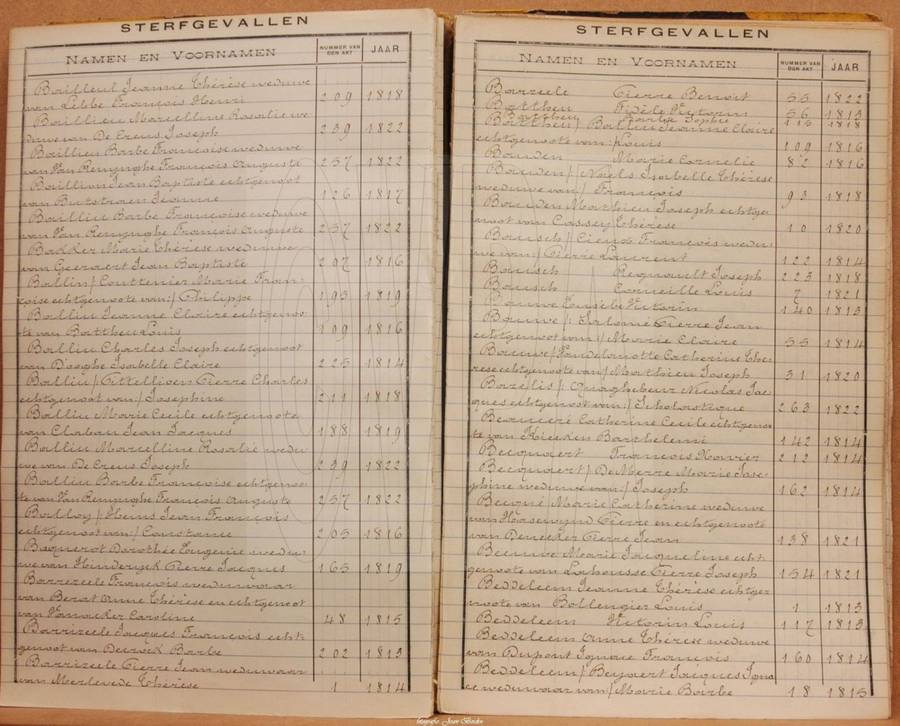 STERFGEVALLEN
NAMEN EN VOORNAMEN NUMMER VAN DEN AKT JAAR
Bailleul Jeanne Thérèse weduwe
van Lebbe François Henri 209 1818
Baillieu Marcelline Rosalie we
duwe van De Creus Joseph 239 1822
Baillieu Barbe Françoise weduwe
van Van Renynghe François Auguste 257 1822
Baillion Jean Baptiste echtgenoot
van Butstraen Jeanne 126 1817
Bailliu Barbe Françoise weduwe
van Van Renynghe François Auguste 257 1822
Bakker Marie Thérèse weduwe
van Geeraert Jean Baptiste 297 1816
Balliu / Couttenier Marie Fran-
çoise echtgenoote van / Philippe 193 1819
Balliu Jeanne Claire echtgenoo
te van Battheu Louis 109 1816
Balliu Charles Joseph echtgenoot
van D'hoeghe Isabelle Claire 225 1814
Balliu / Pierre Charles
echtgenoot van / Josephine 211 1818
Balliu Marie Cecile echtgenoote
van Clabau Jean Jacques 188 1819
Balliu Marcelline Rosalie wedu
we van De Creus Joseph 239 1822
Balliu Barbe Françoise echtgenoo
te van Van Renynghe François Auguste 257 1822
Balloy / Hems Jean François
echtgenoot van / Constance 205 1816
Baquerot Dorothée Eugenie wedu
we van Hinderyck Pierre Jacques 165 1819
Barrezeele François weduwnaar
van Berat Anne Thérèse en echtgenoot
van Vanacker Caroline 48 1815
Barrizeele Jacques François echt
genoot van Deroock Barbe 202 1813
Barrizeele Pierre Jean weduwnaar
van Merlevede Thérèse 1 1814
STERFGEVALLEN
NAMEN EN VOORNAMEN NUMMER VAN DEN AKT JAAR
Barzeele Pierre Benoit 55 1822
Battheu Fidèle Victorin 56 1813
Battheu Sophie 113 1818
Battheu / Balliu Jeanne Claire
echtgenoote van / Louis 109 1816
Bauden Marie Cornelie 82 1816
Bauden / Naels Isabelle Thérèse
weduwe van / François 93 1818
Bauden Mathieu Joseph echtge
noot van Cassey Thérèse 10 1820
Bausch / François wedu
we van / Pierre Laurent 122 1814
Bausch Regnault Joseph 223 1818
Bausch Corneille Louis 7 1821
Bauwe Eusèbe Victorin 140 1813
Bauwe / Salomé Pierre Jean
echtgenoot van / Marie Claire 55 1814
Bauwe / Vandelanotte Catherine Thé
rèse echtgenoote van / Matthieu Joseph 31 1820
Bazelis / Quaghebeur Nicolas Jac
ques echtgenoot van / Scholastique 263 1822
Catherine Cecile echtgenoo
te van Kiecken Barthelemi 142 1814
Becquaert François Xavier 212 1814
Becquaert / DeMerre Marie Jose-
phine weduwe van / Joseph 162 1814
Becque Marie Catherine weduwe
van Haesewyn Pierre en echtgenoote
van Denecker Pierre Jean 138 1821
Beeuwe Marie Jacqueline echt
genoote van Lahousse Pierre Joseph 154 1821
Beddeleem Jeanne Thérèse echtge
noote van Bollengier Louis 1 1813
Beddeleem Victorin Louis 117 1813
Beddeleem Anne Thérèse weduwe
van Dupont Ignace François 160 1814
Beddeleem / Beyaert Jacques Igna
ce weduwnaar van / Marie Barbe 18 1815